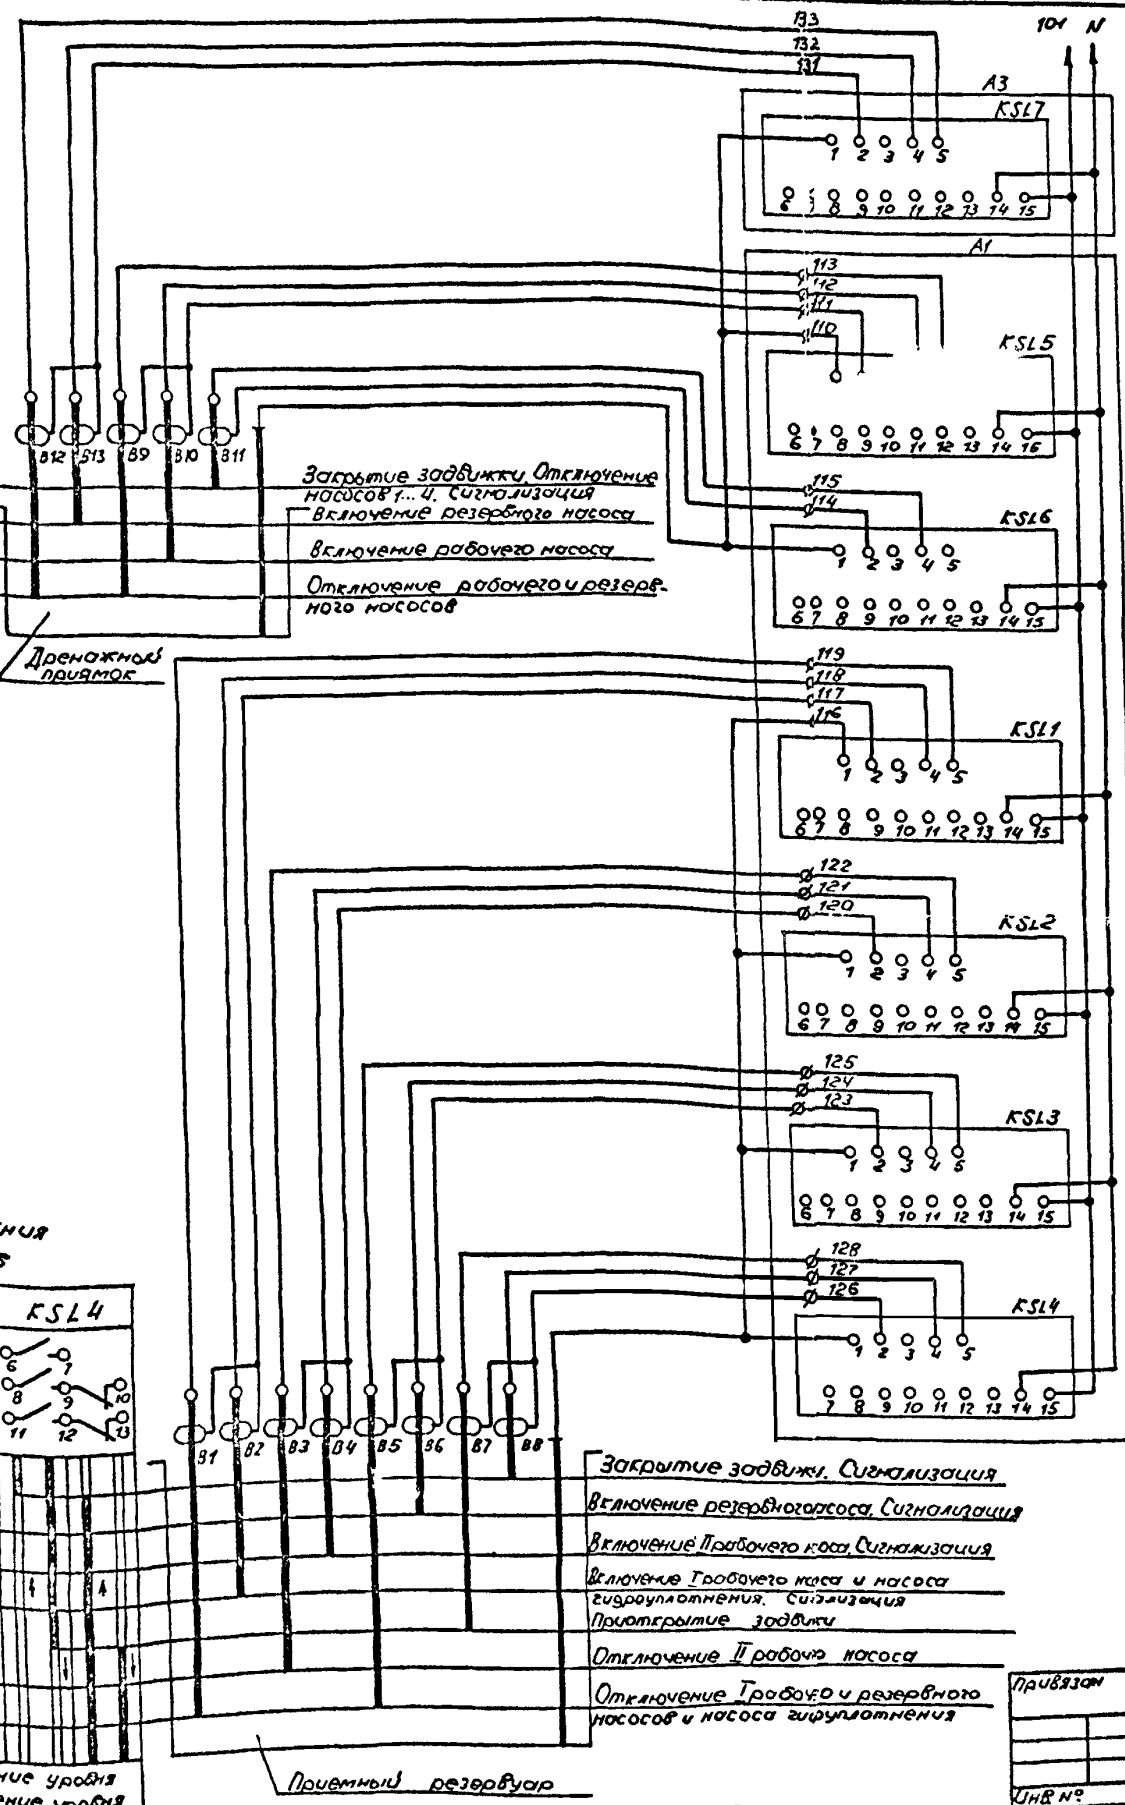 133
132
131
101 N
A3
KSL7
1 2 3 4 5
6 8 9 10 11 12 13 14 15
A1
113
112
111
110
KSL5
6 7 8 9 10 11 12 13 14 16
B12 B13 B9 B10 B11
Закрытие задвижки, Отключение
насосов 1...4. Сигнализация
Включение резервного насоса
Включение рабочего насоса
Отключение рабочего и резерв-
ного насосов
Дренажный
приямок
115
114
KSL6
1 2 3 4 5
6 7 8 9 10 11 12 13 14 15
119
118
117
116
KSL1
1 2 3 4 5
6 7 8 9 10 11 12 13 14 15
122
121
120
KSL2
1 2 3 4 5
6 7 8 9 10 11 12 13 14 15
125
124
123
KSL3
1 2 3 4 5
6 7 8 9 10 11 12 13 14 15
128
127
126
KSL4
1 2 3 4 5
7 8 9 10 11 12 13 14 15
ния
KSL4
6 7
8 9 10
11 12 13
B1 B2 B3 B4 B5 B6 B7 B8
Закрытие задвижи. Сигнализация
Включение резервногонасоса, Сигнализация
Включение II рабочего носа, Сигнализация
Включение I рабочего носа и насоса
гидроуплотнения. Сигнлизация
Приоткрытие задвики
Отключение II рабочо насоса
Отключение I рабочо и резервного
насосов и насоса гидруплотнения
Приемный резервуар
ние уровня
ение уровня
Привязан
Инв №